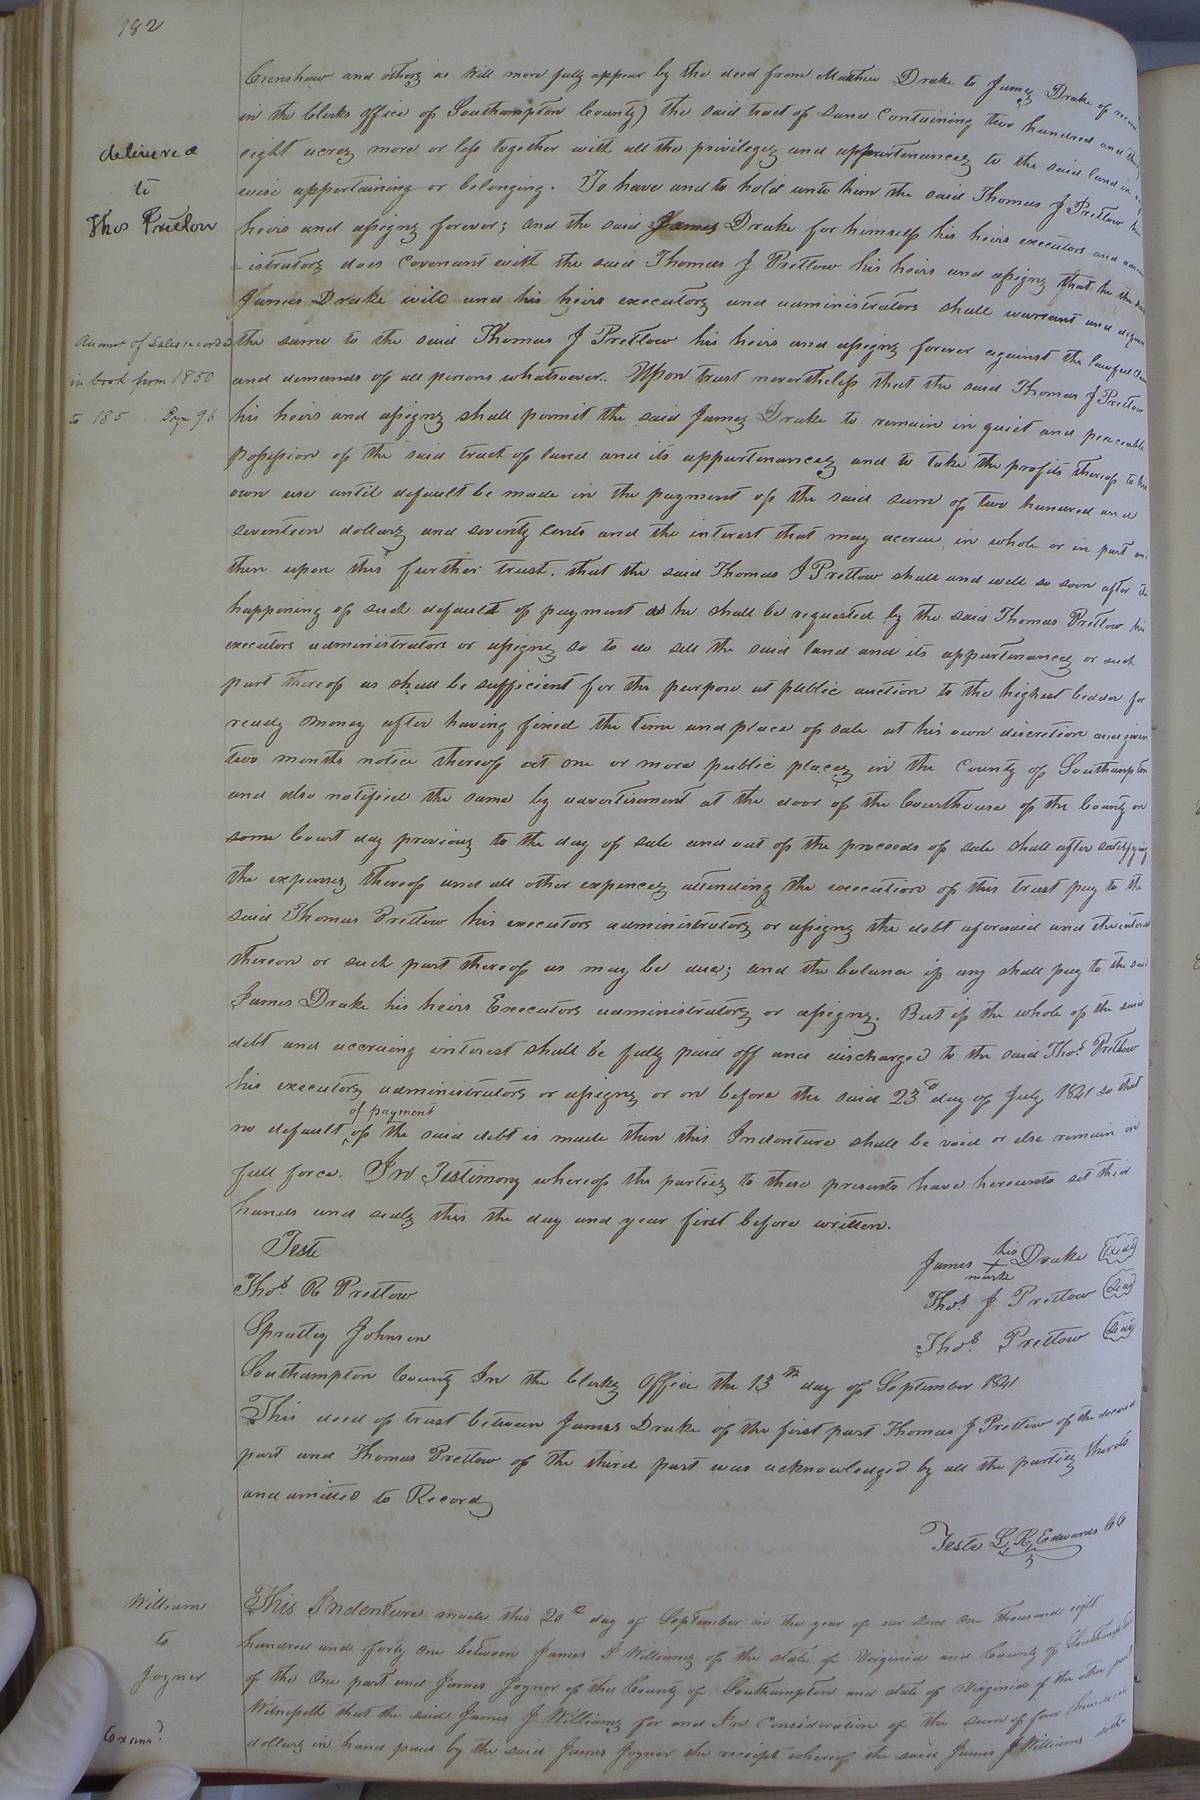 182
delivered
to
Thos Pretlow
Amount of Sales recorded
in book from 1850
to 185 Page 96
Crenshaw and others as will more fully appear by the deed from Matthew Drake to James Drake of
in the Clerks office of Southampton County) the said tract of Land Containing two hundred and
eight acres more or less together with all the privileges and appurtenances to the said land in
wise appertaining or belonging. To have and to hold unto him the said Thomas J Pretlow his
heirs and assigns forever; and the said James Drake for himself his heirs executors and admin
=istrators does Covenant with the said Thomas J Pretlow his heirs and assigns that he the said
James Drake will and his heirs executors and administrators shall warrant and defend
the same to the said Thomas J Pretlow his heirs and assigns forever against the lawful
and demands of all persons whatsoever. Upon trust nevertheless that the said Thomas J Pretlow
his heirs and assigns shall permit the said James Drake to remain in quiet and peaceable
possession of the said tract of land and its appurtenances and to take the profits thereof to his
own use until default be made in the payment of the said sum of two hundred and
seventeen dollars and seventy cents and the interest that may accrue, in whole or in part
then upon this further trust. that the said Thomas J Pretlow shall and will so soon after the
happening of such default of payment as he shall be requested by the said Thomas Pretlow his
executors administrators or assigns so to do sell the said land and its appurtenances or such
part thereof as shall be sufficient for the purpose at public auction to the highest bidder for
ready money after having fixed the time and place of sale at his own discretion and given
two months notice thereof at one or more public places in the County of Southampton
and also notified the same by advertisement at the door of the Courthouse of the County on
some Court day previous to the day of sale and out of the proceeds of sale shall after satisfying
the expenses thereof and all other expences attending the execution of this trust pay to the
said Thomas Pretlow his executors administrators or assigns the debt aforesaid and the interest
thereon or such part thereof as may be due; and the balance if any shall pay to the said
James Drake his heirs Executors administrators or assigns. But if the whole of the said
debt and accruing interest shall be fully paid off and discharged to the said Thos. Pretlow
his executors administrators or assigns or on before the said 23d day of July 1841 so that
of payment
no default of the said debt is made then this Indenture shall be void or else remain in
full force. In Testimony whereof the parties to these presents have hereunto set their
hands and seals this the day and year first before written.
Teste
James his + mark Drake (Seal)
Thos. R Pretlow
Thos. J. Pretlow (Seal)
Spratley Johnson
Thos. Pretlow (Seal)
Southampton County In the Clerks Office the 13th day of September 1841
This deed of trust between James Drake of the first part Thomas J Pretlow of the second
part and Thomas Pretlow of the third part was acknowledged by all the parties thereto
and amitted to Record
Teste L. R. Edwards CC
William
to
Joyner
Exam.d
This Indenture made this 20th day of September in the year of our Lord One thousand eight
hundred and forty one between James J Williams of the state of Virginia and County of Southampton
of the One part and James Joyner of the County of Southampton and state of Virginia of the other part
Witnesseth that the said James J Williams for and In Consideration of the sum of four hundred
dollars in hand paid by the said James Joyner the receipt whereof the said James J Williams doth